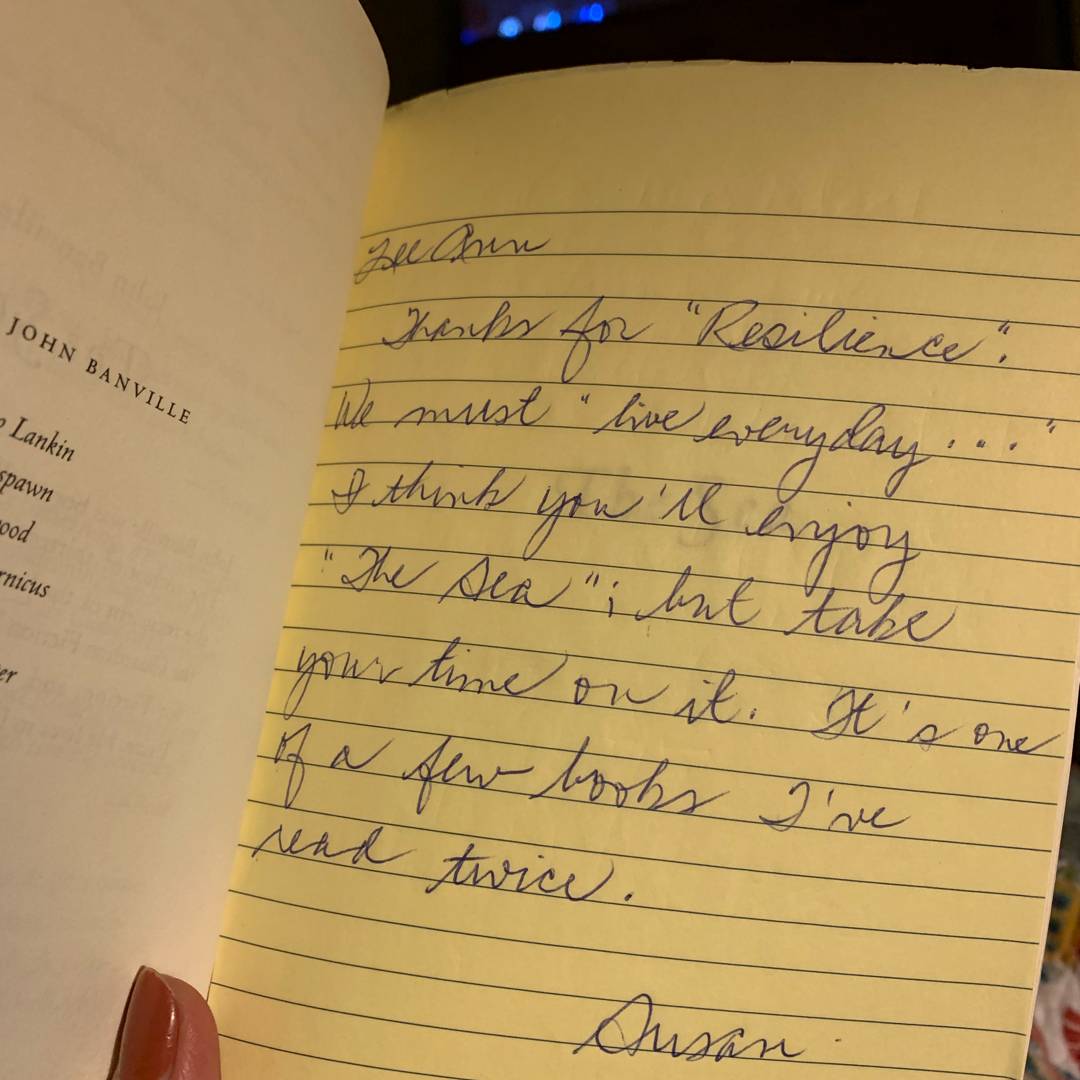 JOHN BANVILLE
Lankin
spawn
ood
rnicus
er
Lee Ann
Thanks for "Resilience".
We must "live everyday..."
I think you'll enjoy
"The Sea"; but take
your time on it. It's one
of a few books I've
read twice.
Susan